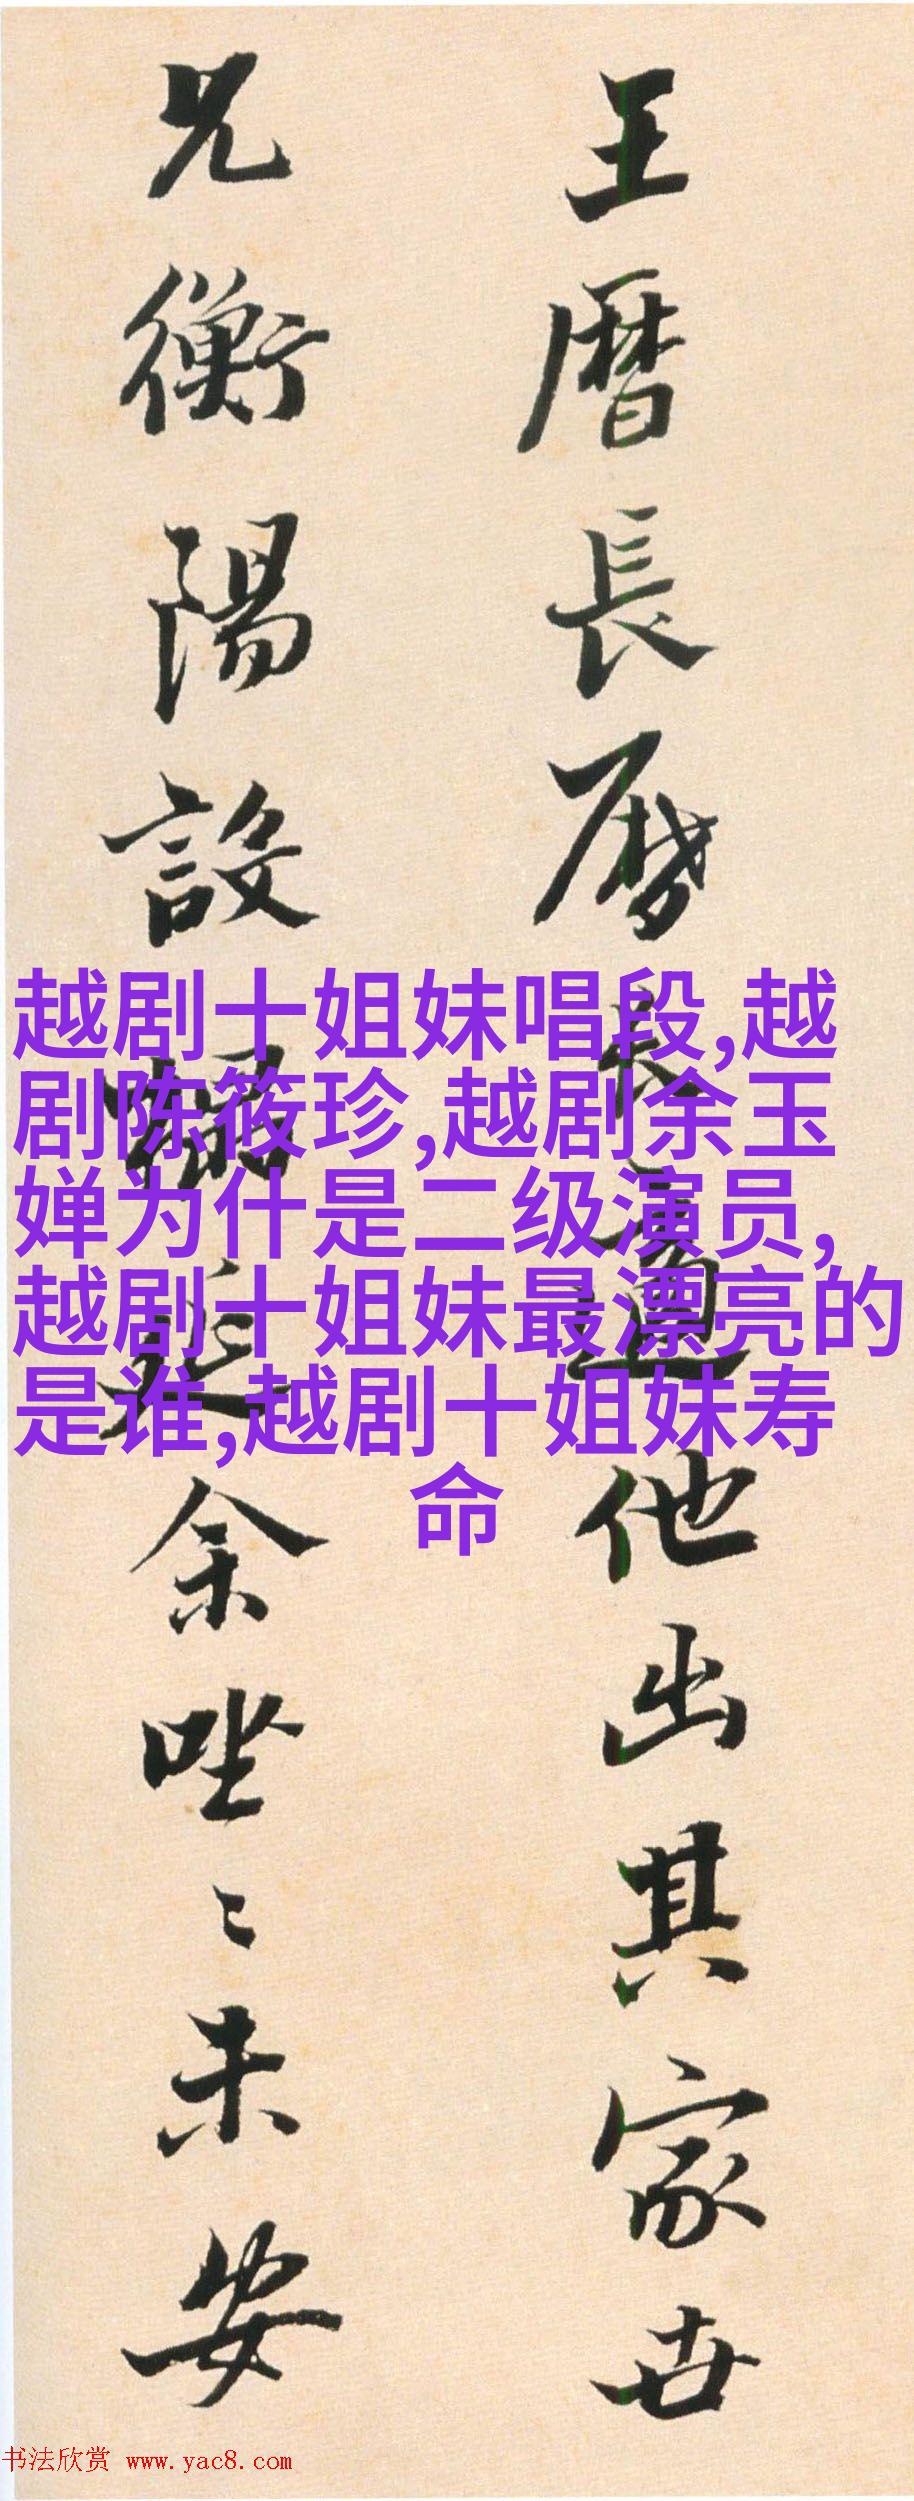 王暦長暦長道他出其家世
兄衡陽設延余唑〻未安
越剧十姐妹唱段,越
剧陈筱珍,越剧余玉
婵为什是二级演员,
越剧十姐妹最漂亮的
是谁,越剧十姐妹寿
命
书法欣赏 www.yac8.com